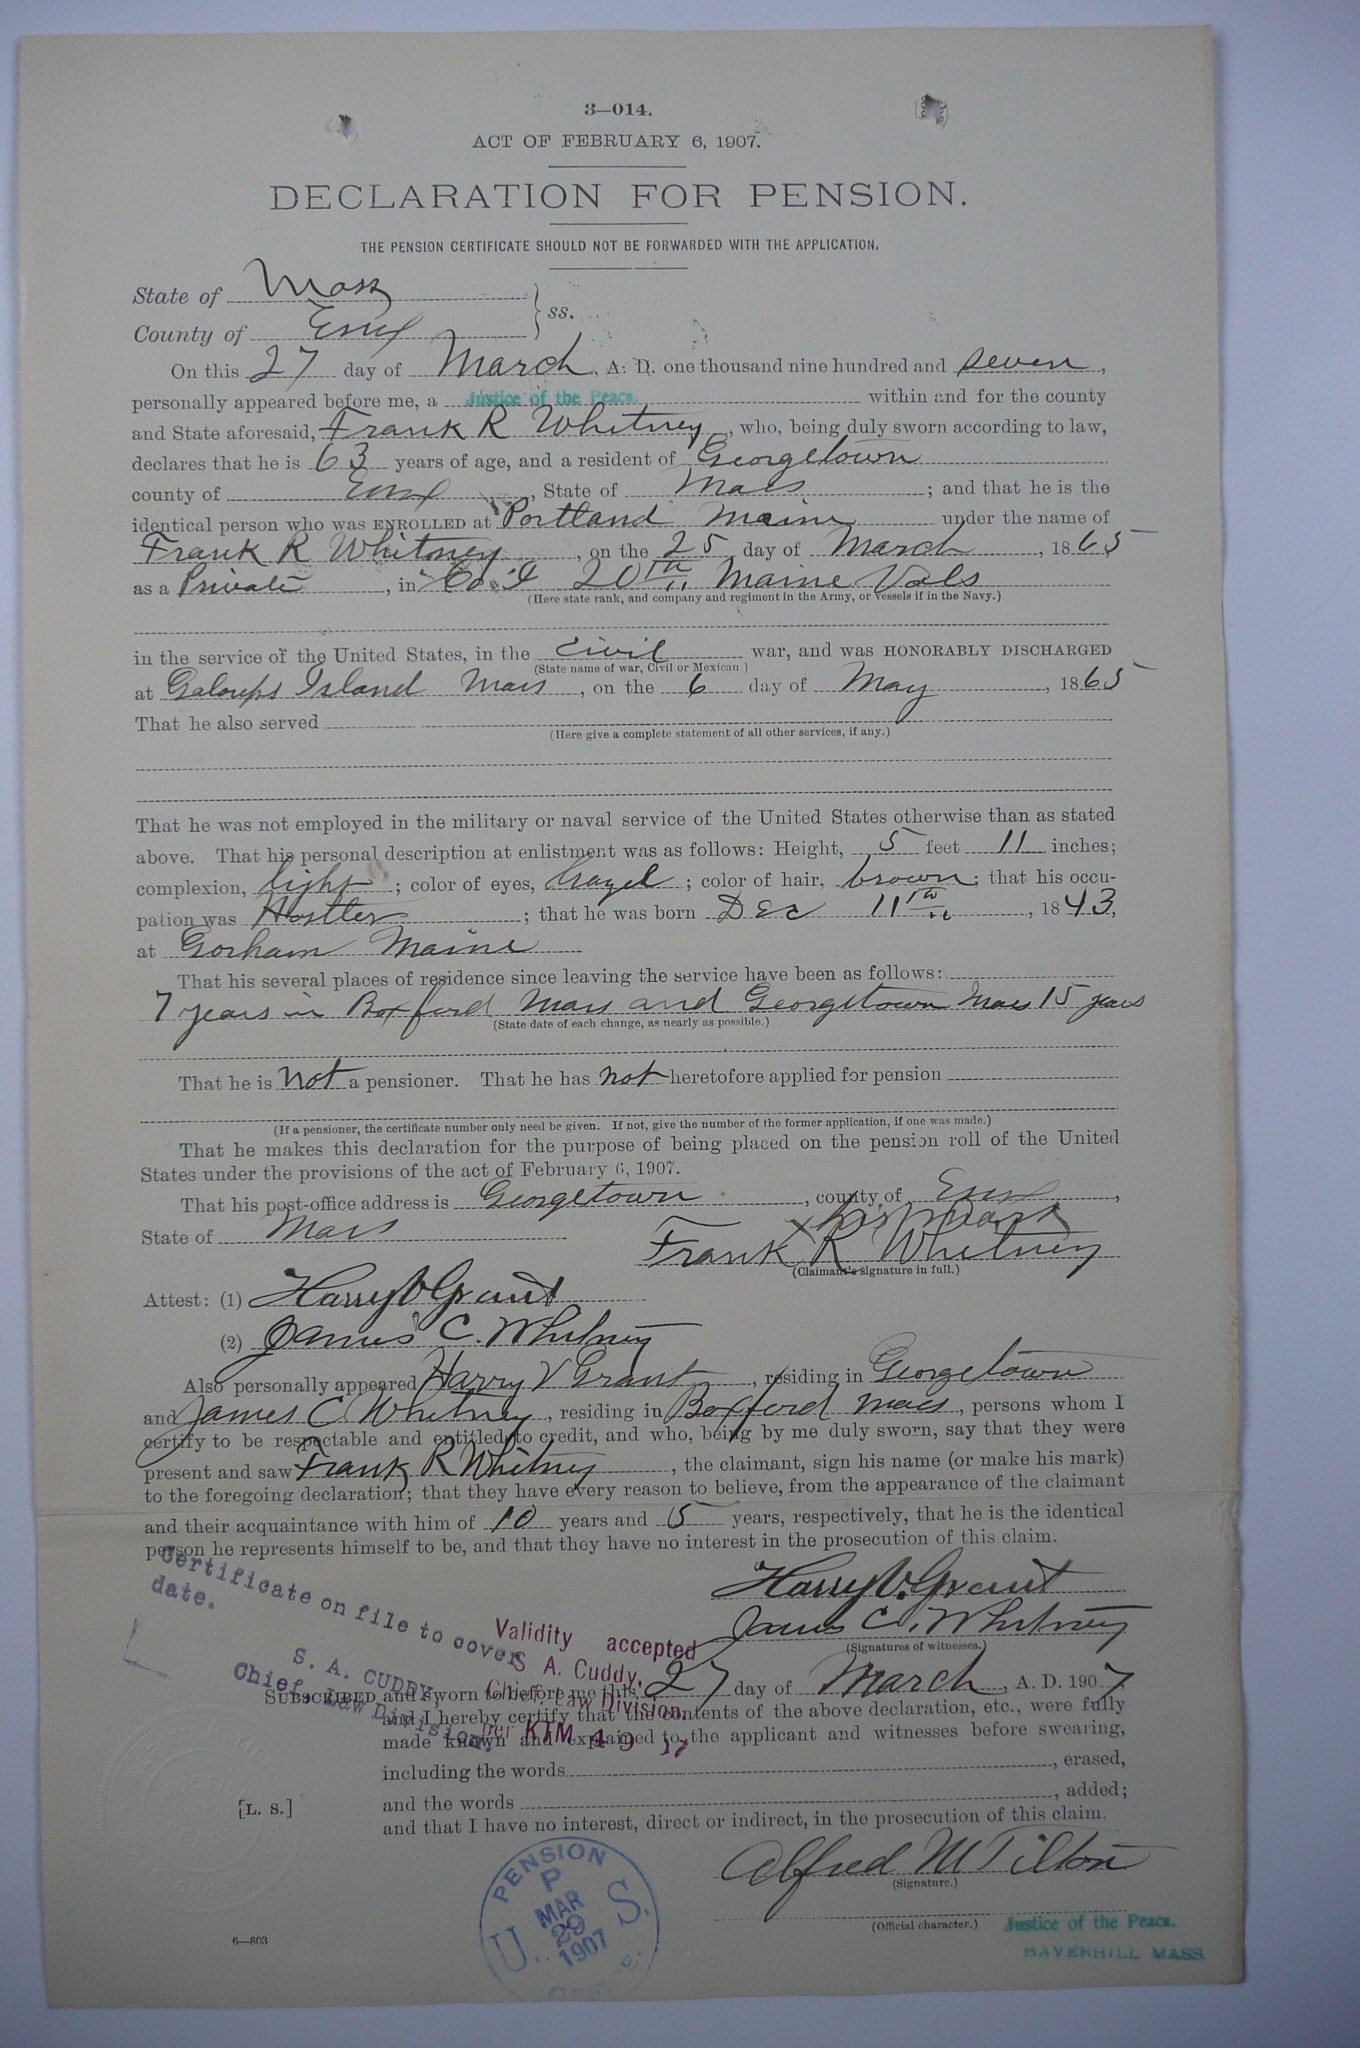 3—014.
ACT OF FEBRUARY 6, 1907.
DECLARATION FOR PENSION.
THE PENSION CERTIFICATE SHOULD NOT BE FORWARDED WITH THE APPLICATION.
State of Mass
County of Essex } ss.
On this 27 day of March, A. D. one thousand nine hundred and seven,
personally appeared before me, a Justice of the Peace. within and for the county
and State aforesaid, Frank R Whitney, who, being duly sworn according to law,
declares that he is 63 years of age, and a resident of Georgetown
county of Essex, State of Mass; and that he is the
identical person who was ENROLLED at Portland Maine under the name of
Frank R Whitney, on the 25 day of March, 1865
as a Private, in Co. I 20th Maine Vols
(Here state rank, and company and regiment in the Army, or vessels if in the Navy.)
in the service of the United States, in the civil war, and was HONORABLY DISCHARGED
(State name of war, Civil or Mexican)
at Galoups Island Mass, on the 6 day of May, 1865
That he also served
(Here give a complete statement of all other services, if any.)
That he was not employed in the military or naval service of the United States otherwise than as stated
above. That his personal description at enlistment was as follows: Height, 5 feet 11 inches;
complexion, light; color of eyes, hazel; color of hair, brown; that his occu-
pation was Hostler; that he was born Dec 11th, 1843,
at Gorham Maine
That his several places of residence since leaving the service have been as follows:
7 years in Boxford Mass and Georgetown Mass 15 years
(State date of each change, as nearly as possible.)
That he is not a pensioner. That he has not heretofore applied for pension
(If a pensioner, the certificate number only need be given. If not, give the number of the former application, if one was made.)
That he makes this declaration for the purpose of being placed on the pension roll of the United
States under the provisions of the act of February 6, 1907.
That his post-office address is Georgetown, county of Essex,
State of Mass
his mark
Frank X R Whitney
(Claimant's signature in full.)
Attest: (1) Harry V Grant
(2) James C. Whitney
Also personally appeared Harry V Grant, residing in Georgetown
and James C Whitney, residing in Boxford Mass, persons whom I
certify to be respectable and entitled to credit, and who, being by me duly sworn, say that they were
present and saw Frank R Whitney, the claimant, sign his name (or make his mark)
to the foregoing declaration; that they have every reason to believe, from the appearance of the claimant
and their acquaintance with him of 10 years and 5 years, respectively, that he is the identical
person he represents himself to be, and that they have no interest in the prosecution of this claim.
Harry V. Grant
James C. Whitney
(Signatures of witnesses.)
Certificate on file to cover
date.
S. A. CUDDY,
Chief, Law Division.
Validity accepted
S A. Cuddy,
Chief, Law Division,
per KTM 4 9 17
SUBSCRIBED and sworn to before me this 27 day of March, A. D. 1907
and I hereby certify that the contents of the above declaration, etc., were fully
made known and explained to the applicant and witnesses before swearing,
including the words, erased,
and the words, added;
and that I have no interest, direct or indirect, in the prosecution of this claim.
[L. S.]
Alfred M Tilton
(Signature.)
(Official character.) Justice of the Peace.
HAVERHILL MASS
6—803
U. S. PENSION OFFICE.
P
MAR
29
1907